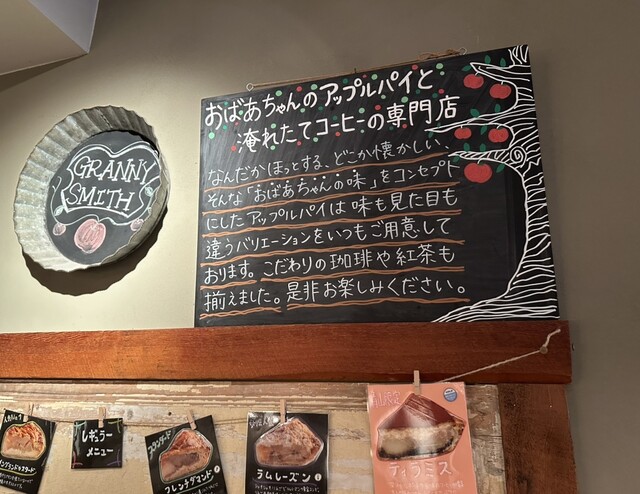 GRANNY
SMITH
おばあちゃんのアップルパイと
淹れたてコーヒーの専門店
なんだかほっとする、どこか懐かしい、
そんな「おばあちゃんの味」をコンセプト
にしたアップルパイは味も見た目も
違うバリエーションをいつもご用意して
おります。こだわりの珈琲や紅茶も
揃えました。是非お楽しみください。
レギュラー
メニュー
フレンチダマンド
ラムレーズン
ティラミス